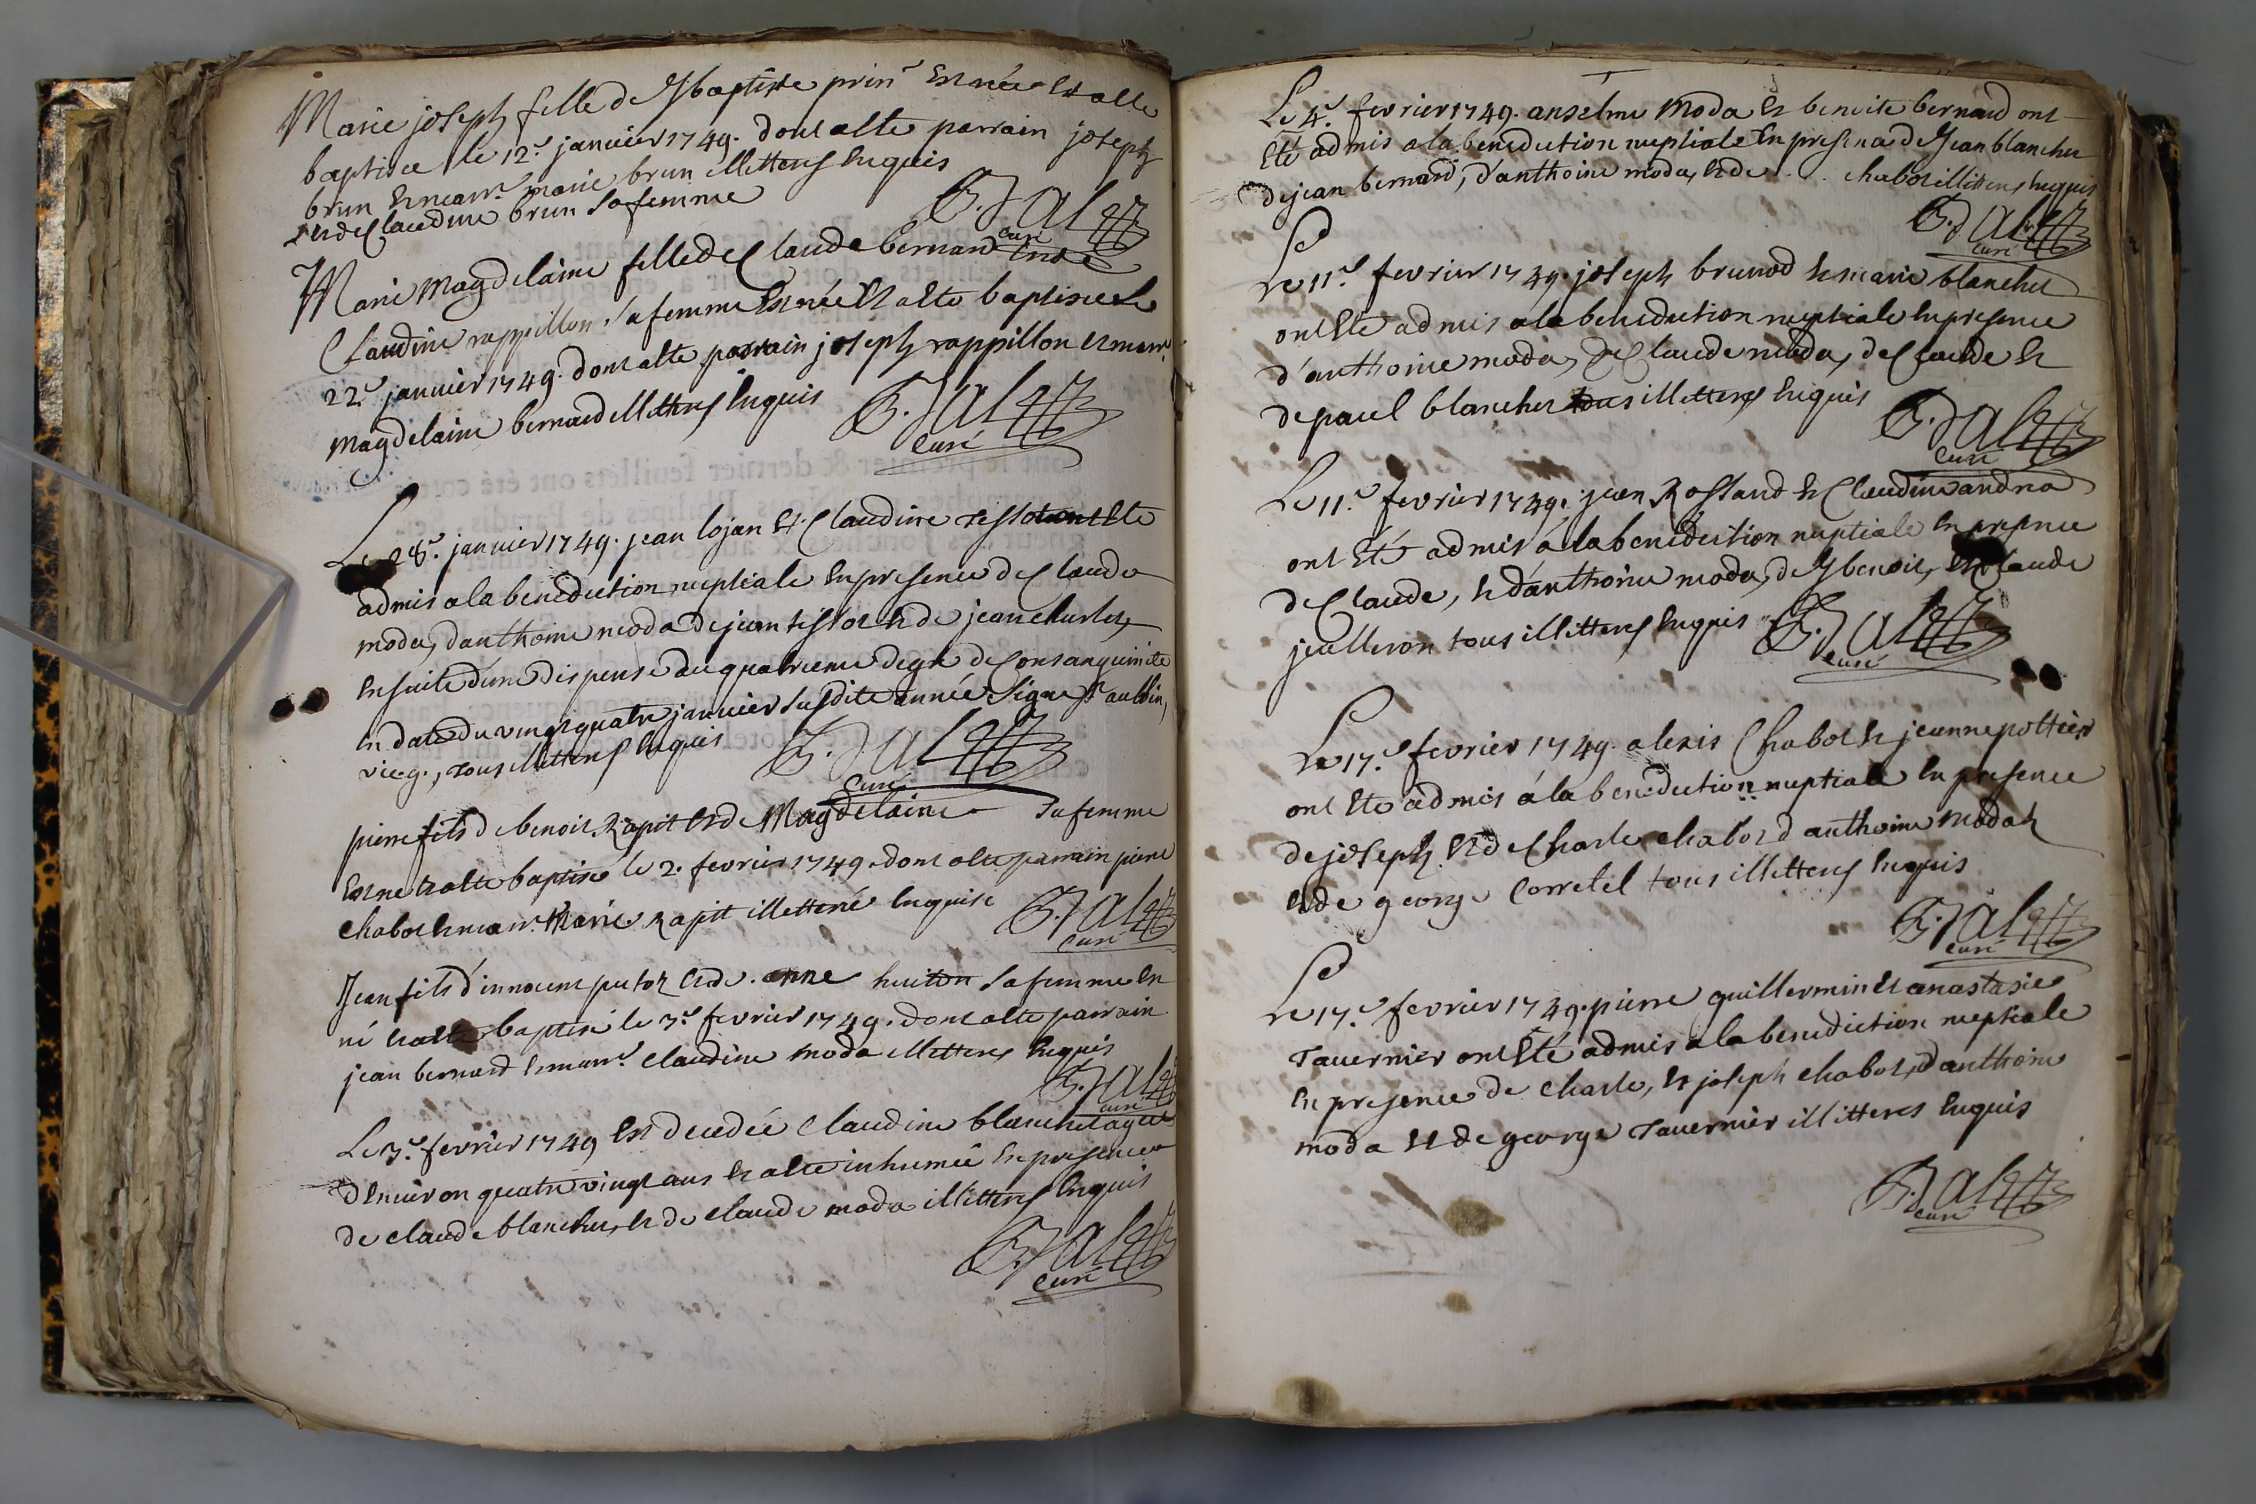 Marie joseph fille de Jbaptiste prin.r Est née Et a Ette
baptisée le 12.e janvier 1749. dont a Ette parrain joseph
brun Et marr.e marie brun illitterés Enquis
Et de Claudine brun sa femme
B. Jal
Curé
Marie Magdelaine fille de Claude bernard Et de
Claudine rappillon sa femme Est née Et a Ette baptisée le
22.e janvier 1749. dont a Ette parrain joseph rappillon Et marr.
Magdelaine bernard illitterés Enquis
Curé
Le 28.e janvier 1749. jean lojan Et Claudine tissot ont Ete
admis a la benediction nuptiale En presence de Claude
moda, d'anthoine moda de jean tissot Et de jean charles
En suite d'une dispense du quatrieme degré de Consanguinite
En date du vingt quatre janvier susdite année signé
vic. g., tous illitterés Enquis
Curé
pierre fils de benoit Rapit Et de Magdelaine sa femme
Est ne Et a Ette baptisé le 2. fevrier 1749. dont a Ette parrain pierre
chabot Et marr. Marie Rapit illitteré Enquise
Curé
Jean fils d'innocent putoz Et de anne huiton sa femme Est
né Et a Ette baptisé le 3.e fevrier 1749. dont a Ette parrain
jean bernard Et marr.e Claudine moda illitteres Enquis
Curé
Le 3.e fevrier 1749 Est decedée Claudine blanchet agée
d'Environ quatre vingt ans Et a Ette inhumée En presence
de claude blanchet, Et de claude moda illitterés Enquis
Curé
Le 4.e fevrier 1749. anselme Moda Et benoite bernard ont
Eté admis a la benediction nuptiale En presence de Jean blanchet
de jean bernard, d'anthoine moda, Et de . . . chabot illitteres Enquis
Curé
Le 11.e fevrier 1749. joseph brunod Et marie blanchet
ont Eté admis a la benediction nuptiale En presence
d'anthoine moda, de Claude moda, de Claude Et
de paul blanchet tous illitterés Enquis
Curé
Le 11.e fevrier 1749. jean Rossand Et Claudine
ont Eté admis á la benediction nuptiale En presence
de Claude, Et d'anthoine moda, de Jbenoit, Et Claude
jeulleron tous illitterés Enquis
Curé
Le 17.e fevrier 1749. alexis Chabot Et jeanne pottier
ont Ete admis á la benediction nuptiale En presence
de joseph Et de Charle chabot d'anthoine Moda
Et de george Corretel tous illitterés Enquis
Curé
Le 17.e fevrier 1749. pierre guillermin Et anastasie
Tavernier ont Eté admis a la benediction nuptiale
En presence de charle, Et joseph chabot, d'anthoine
moda Et de george Tavernier illitteres Enquis
Curé